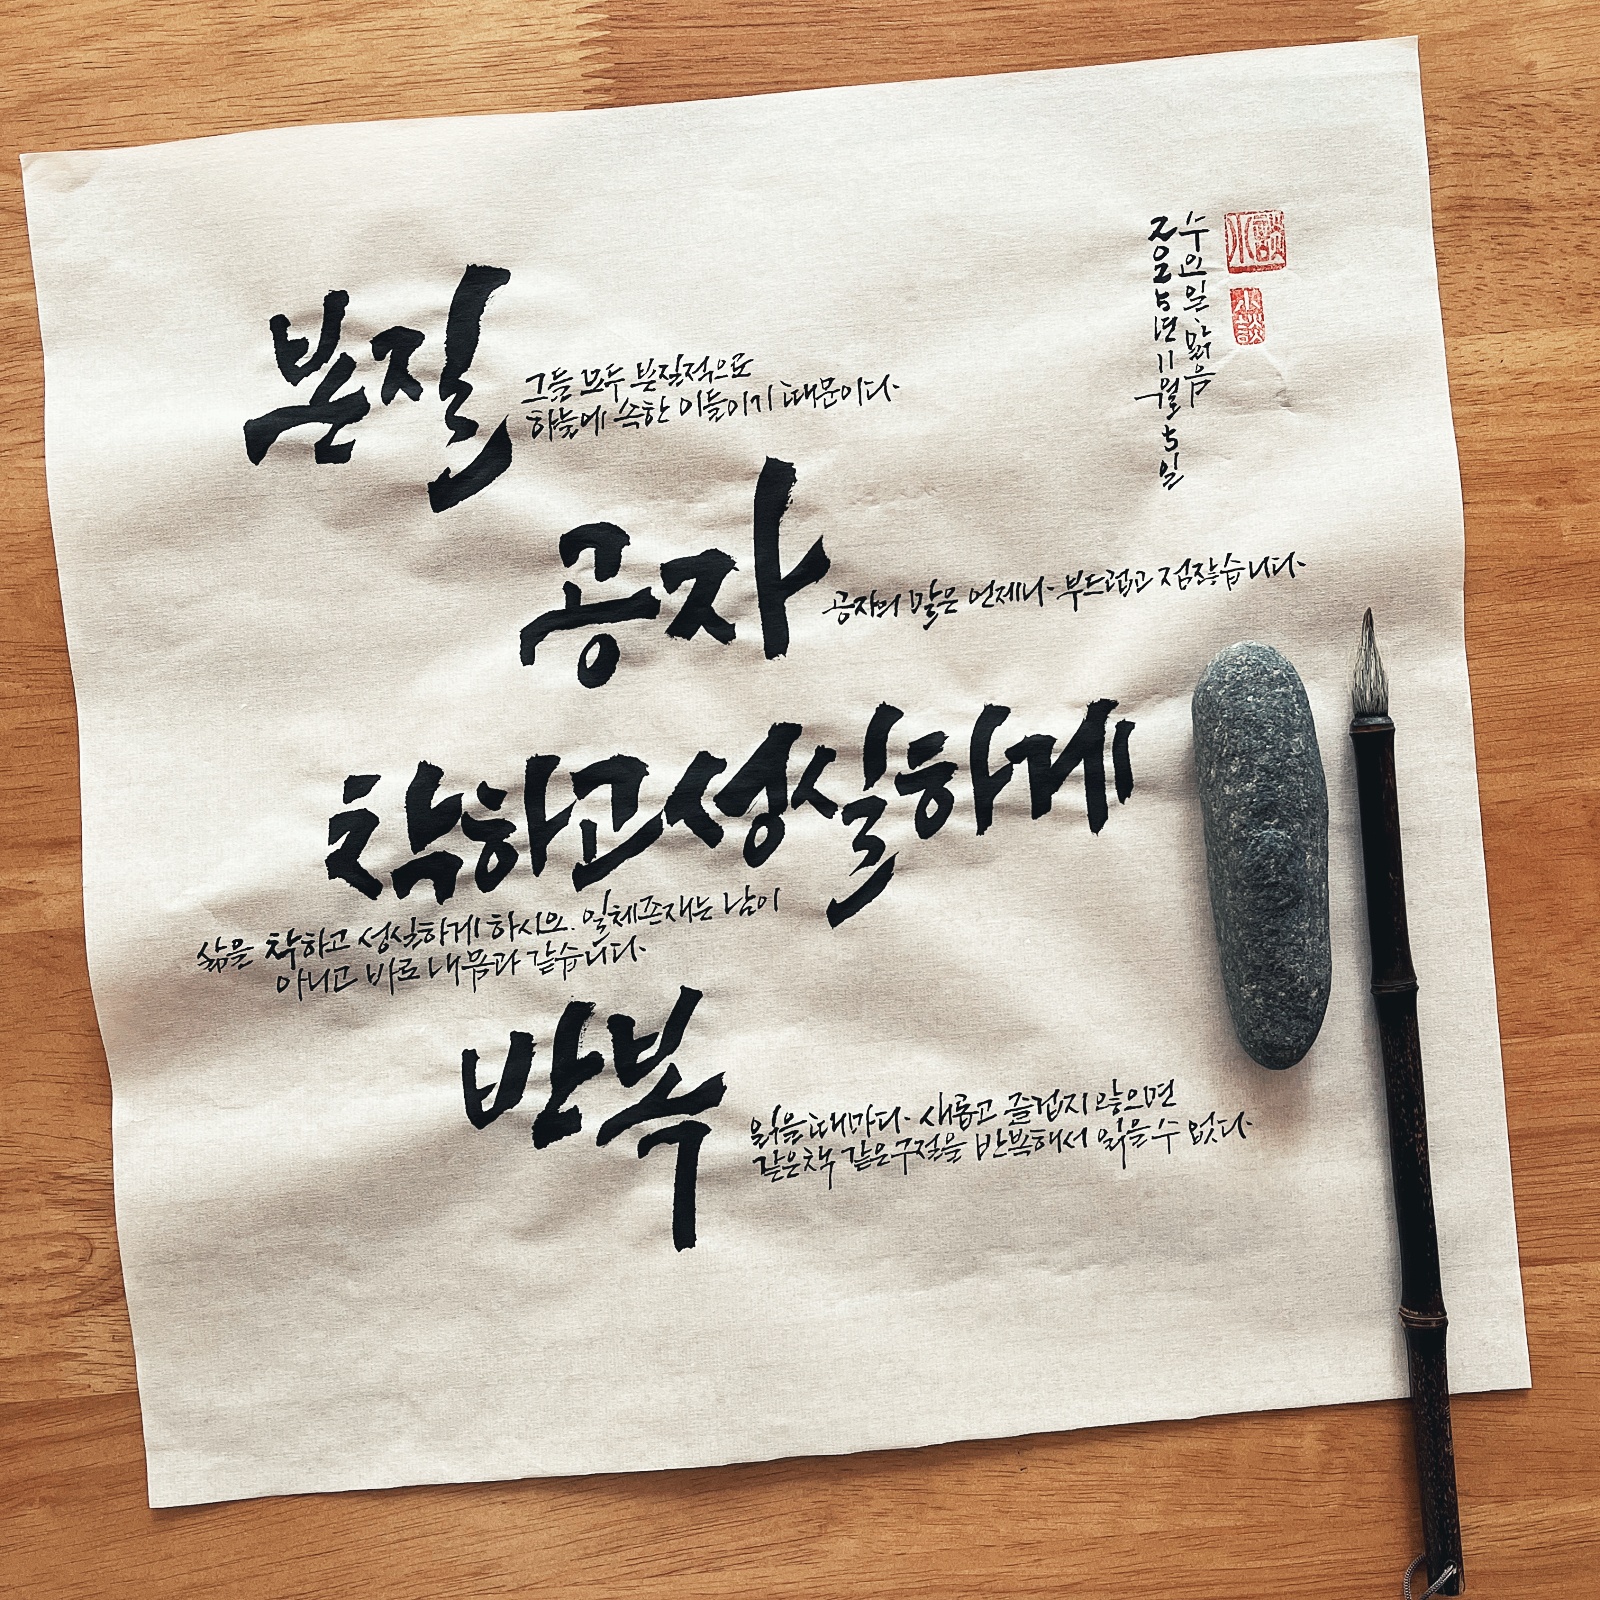 본질
그들 모두 본질적으로
하늘에 속한 이들이기 때문이다.
공자
공자의 말은 언제나 부드럽고 점잖습니다.
착하고성실하게
삶을 착하고 성실하게 하시오. 일체존재는 남이
아니고 바로 내몸과 같습니다.
반복
읽을때마다 새롭고 즐겁지않으면
같은책 같은구절을 반복해서 읽을수 없다.
수요일 맑음
5년 11월 5일
小談
小談